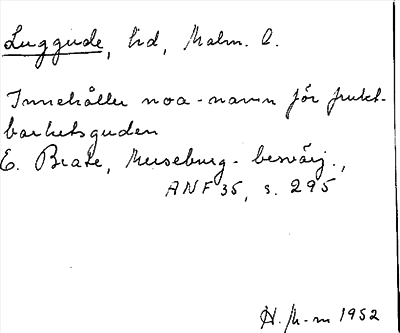 Luggude, hd, Malm. l.
Innehåller noa-namn för frukt-
barhetsguden
E. Brate, Merseburg-besvärj.,
ANF 35, s. 295
H. M-m 1952